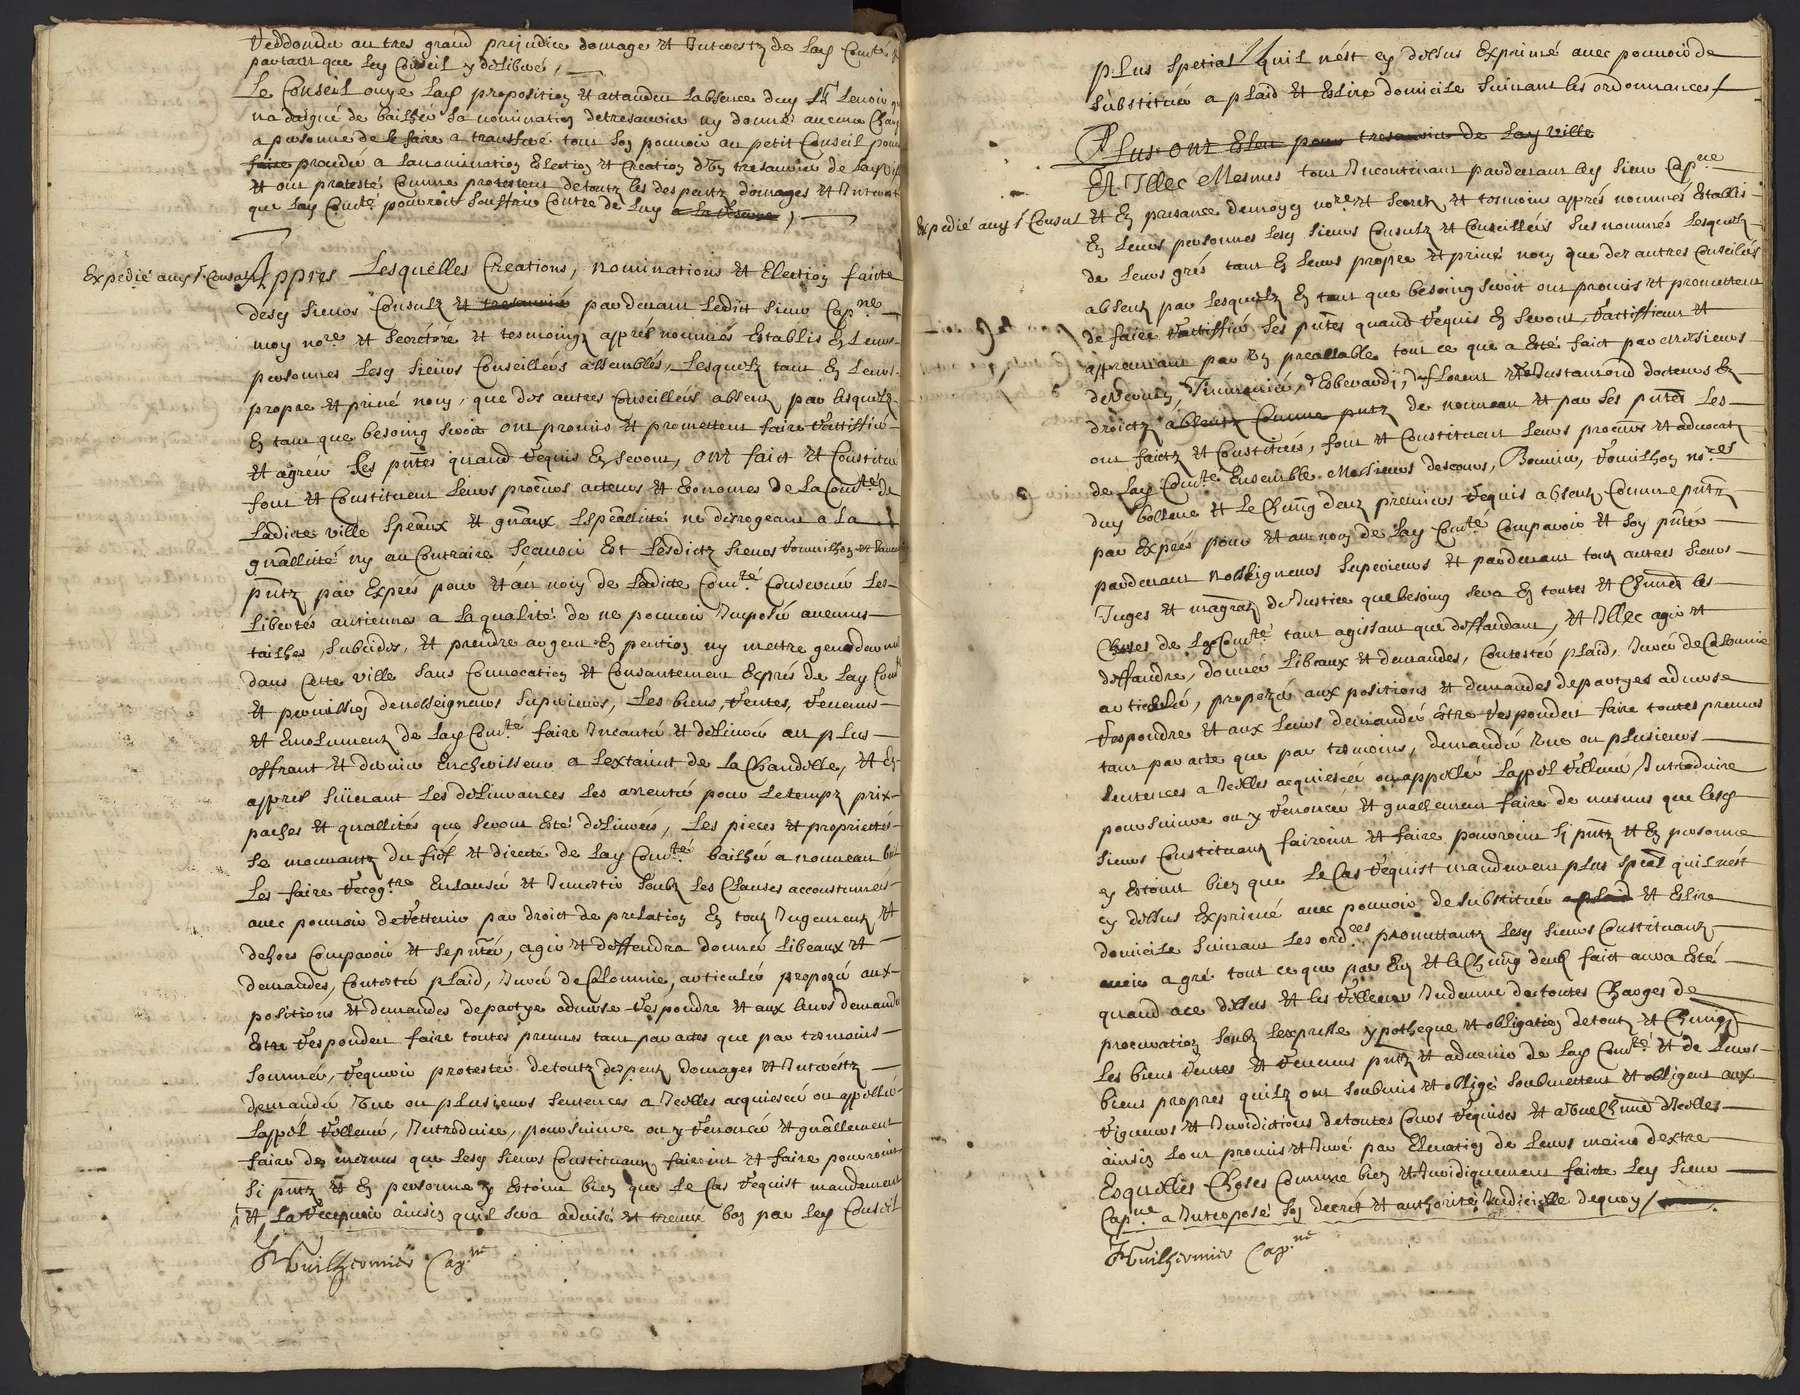 redonder au tres grand prejudice domage et Interestz de lad Comté et
partant que led Conseil y deliberé,
Le Conseil ouye lad proposition et attandeu labsence dud Sr Lenoir qui
na daigné de bailher sa nomination de tresaurier ny donné aucune Charge
a personne de le faire a transferé tout son pouvoir au petit Conseil pour
faire proceder a la nomination Election et Creation d'un tresaurier de lad ville
et ont protesté Comme protestent de toutz les despentz domages et Interestz
que lad Comté pourroit souffrir Contre de luy a la descente,
Expedié aud Sr Consul
Appres Lesquelles Creations, nominations et Election faite
desd sieurs Consulz et tresaurié pardevant Ledict sieur Capne
moy nore et Secretere et tesmoingz apprés nommés Establis En Leurs
personnes Lesd sieurs Conseillérs assemblés, Lesquelz tant En Leur
propre et privé nom, que des autres Conseillérs absentz par lesquelz
En tant que besoing seroit ont promis et promettent faire rattiffié
et agréer Les pntes quand requis En seront, ont faict et Constitué
font et Constituent Leurs procurs acteurs et Economes de La Comté de
Ladicte ville speaux et gnaux Lspeallitté ne derrogeant a la
gnallitté ny au Contraire Sçavoir Est Lesdictz sieurs
pntz par Exprés pour et au nom de Ladicte Comté Conserver Les
Libertés antienne a La qualité de ne pouvoir Imposer aucunes
tailhes, subcides, et prendre argent En pention ny mettre gendarmes
dans Cette ville sans Convocation et Consantement Exprés de Lad Comté
et permission de nosseigneurs superieurs, Les biens, rentes, revenus
et Emolumentz de Lad Comté faire Incanter et deliurer au plus
offrant et dernier Encherisseur a Lextaint de La Chandelle, et En
appres suivant Les deliurances Les arrenter pour Le temps prix
paches et quallités que seront Esté deliurés, Les pieces et proprietés
se mouvantz du fief et directe de Lad Comté bailher a nouveau bail
Les faire recogtre En lausér et Investir soubz Les Clauses accoustumées
avec pouvoir de rettenir par droict de prelation En toutz Jugementz et
dehors Comparoir et se pnter, agir et deffendre donner Libeaux et
demandes, Contester plaid, Jurer de Calomnie, articuler proposer aux
positions et demandes de partye adverse respondre et aux leurs demander
Estre respondeu faire toutes preuves tant par actes que par tesmoins
sommer, requerir protester de toutz despentz domages et Interéstz
demander Une ou plusieurs sentences a Icelles acquiescer ou appeller
Lappel relleuer, Introduire, poursuivre ou y renoncer et gnallement
faire de mesmes que Lesd sieurs Constituantz fairoint et faire pourroint
si pntz et En personne y Estoint bien que Le Cas requist mandement
et La recepvoir ainsin quil sera advisé et treuvé bon par Led Conseil
Guilhermier Capne
plus spetial quil nést cy dessus Exprimé avec pouvoir de
substituer a plaid et Eslire domicile suivant les ordonnances
Plus ont Eleu pour tresaurier de Lad ville
Et Illec Mesmes tout Incontinant pardevant led sieur Capne
Expedié aud Sr Consul
et En presance de moyd nore et Secret, et tesmoins apprés nommés Establis
En Leurs personnes Lesd sieurs Consulz et Conseillérs susnommés Lesquelz
de Leurs grés tant En Leurs propre et privé nom que des autres Conseilés
absentz par Lesquelz En tant que besoing seroit ont promis et promettent
de faire rattiffier Les pntes quand requis En seront, rattiffient et
appreuvant par Un preallable tout ce que a Esté faict par
droictz absentz Comme pntz de nouveau et par Les pntes Les
ont faictz et Constitués, font et Constituent Leurs procurs et advocatz
de Lad Comte Ensemble Messieurs descours, Bonnier, nores
dud bollene et Le Chung deux premiers requis absentz Comme pntz
par Exprés pour et au nom de Lad Comté Comparoir et soy pnter
pardevant nosseigneurs superieurs et pardevant toutz autres sieurs
Juges et magratz de Justice que besoing sera En toutes et Chunes les
Choses de Lad Comté tant agissant que deffandant, et Illec agir et
deffandre, donner Libeaux et demandes, Contester plaid, Jurer de Calomnie
articuler, proposer aux positions et demandes de partye adverse
respondre et aux Leurs demander être respondeu faire toutes preuves
tant par acte que par tesmoins, demander Une ou plusieurs
sentences a Icelles acquiescer ou appeller Lappel relleuer, Introduire
poursuivre ou y renoncer et gnallement faire de mesmes que lesd
sieurs Constituantz fairoint et faire pourroint si pntz et En personne
y Estoint bien que Le Cas requist mandement plus speal quil nést
cy dessus Exprimé avec pouvoir de substituer a plaid et Eslire
domicile suivant Les ordces promettantz Lesd sieurs Constituantz
avoir a gré tout ce que par Eux et le Chung deulx faict aura Esté
quand a ce dessus et les relleuer Indemne de toutes Charges de
procuration soubz Lexpresse ypotheque et obligation de toutz et Chungz
Les biens rentes et revenus pntz et advenir de Lad Comté et de Leurs
biens propres quilz ont soubmis et obligé soubmettent et obligent aux
rigueurs et Juridictions de toutes Cours requises et a Une Chune dicelles
ainsin Lont promis et Juré par Elevation de Leurs mains dextre
Esquelles Choses Comme bien et Juridiquement faites Led sieur
Capne a Interposé son decret et authorité Judicielle dequoy
Guilhermier Capne